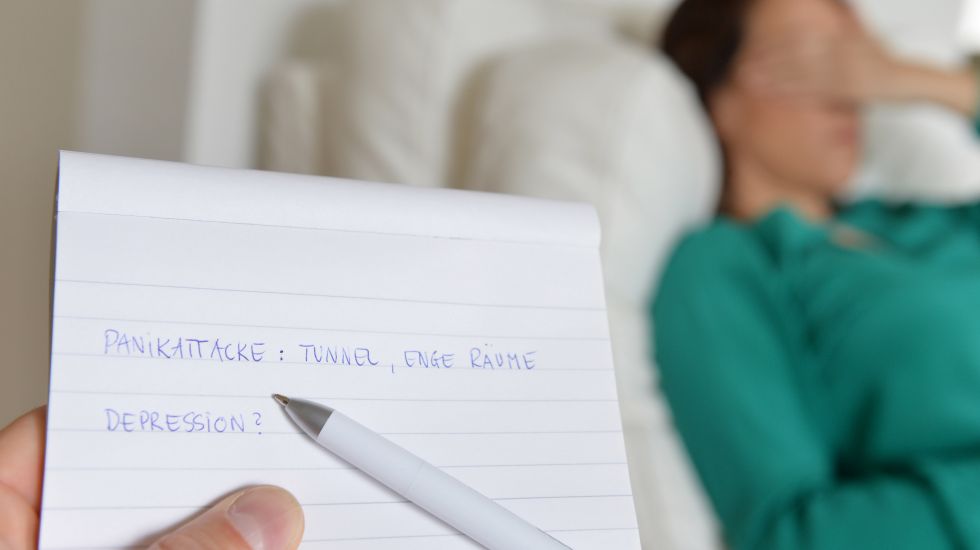 PANIKATTACKE : TUNNEL, ENGE RÄUME
DEPRESSION?